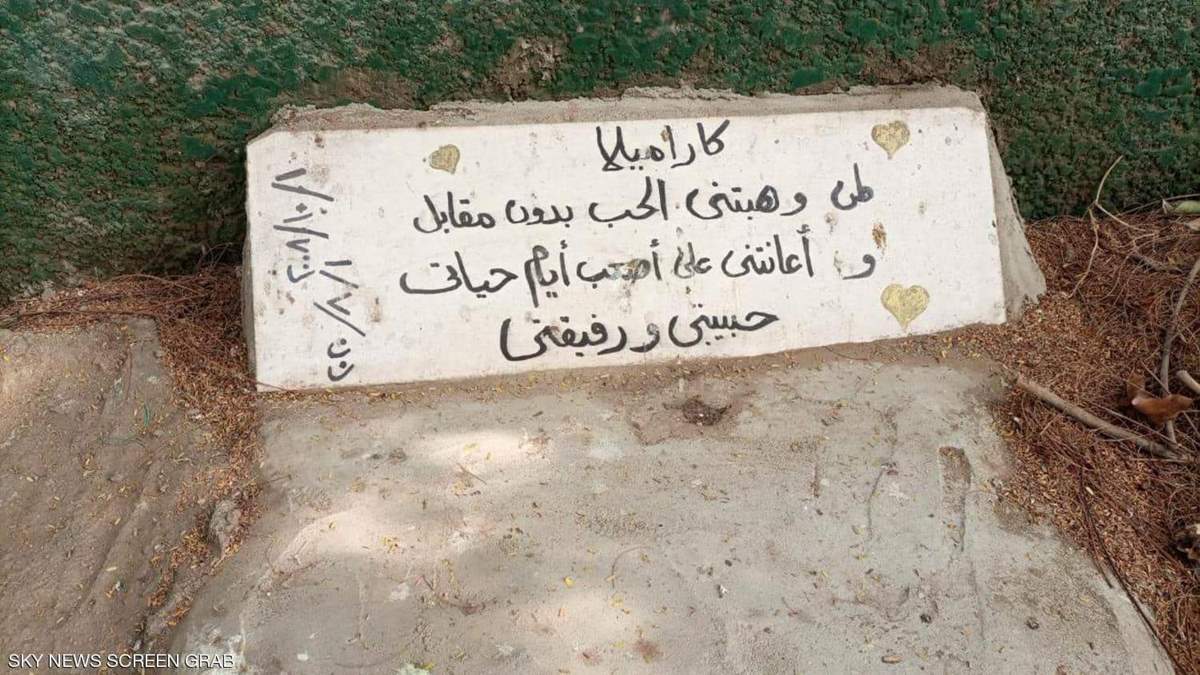 كاراميلا
لمن وهبتنى الحب بدون مقابل
و أعانتنى على أصعب أيام حياتى
حبيبتى و رفيقتى
SKY NEWS SCREEN GRAB